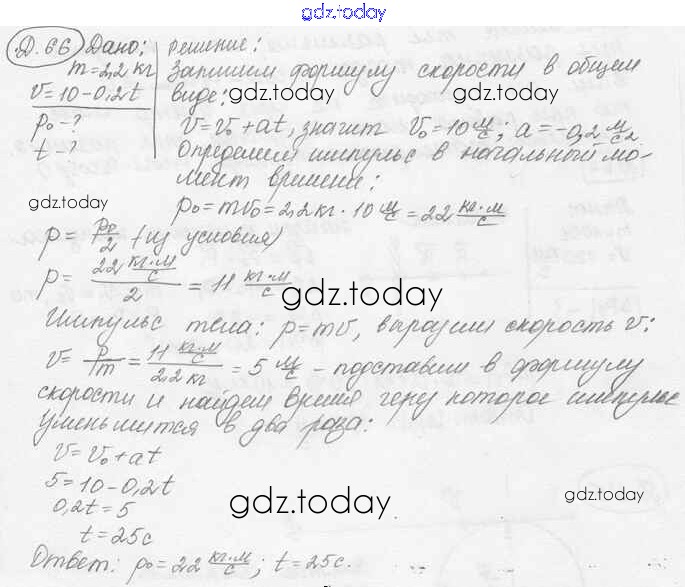 gdz.today
Д.66 Дано: Решение:
m=2,2 кг Запишем формулу скорости в общем
v=10-0,2t виде: gdz.today gdz.today
p₀-? v=v₀+at, значит v₀=10 м/с; a=-0,2 м/с².
t-? Определим импульс в начальный мо-
мент времени:
gdz.today
p₀=mv₀=2,2кг·10 м/с=22 кг·м/с
p=p₀/2 (из условия)
p=22 кг·м/с / 2 = 11 кг·м/с
gdz.today
Импульс тела: p=mv, выразим скорость v:
v=p/m=11 кг·м/с / 2,2 кг = 5 м/с - подставим в формулу
скорости и найдем время через которое импульс
уменьшится в два раза:
v=v₀+at
5=10-0,2t
gdz.today gdz.today
0,2t=5
t=25с
Ответ: p₀=22 кг·м/с; t=25с.